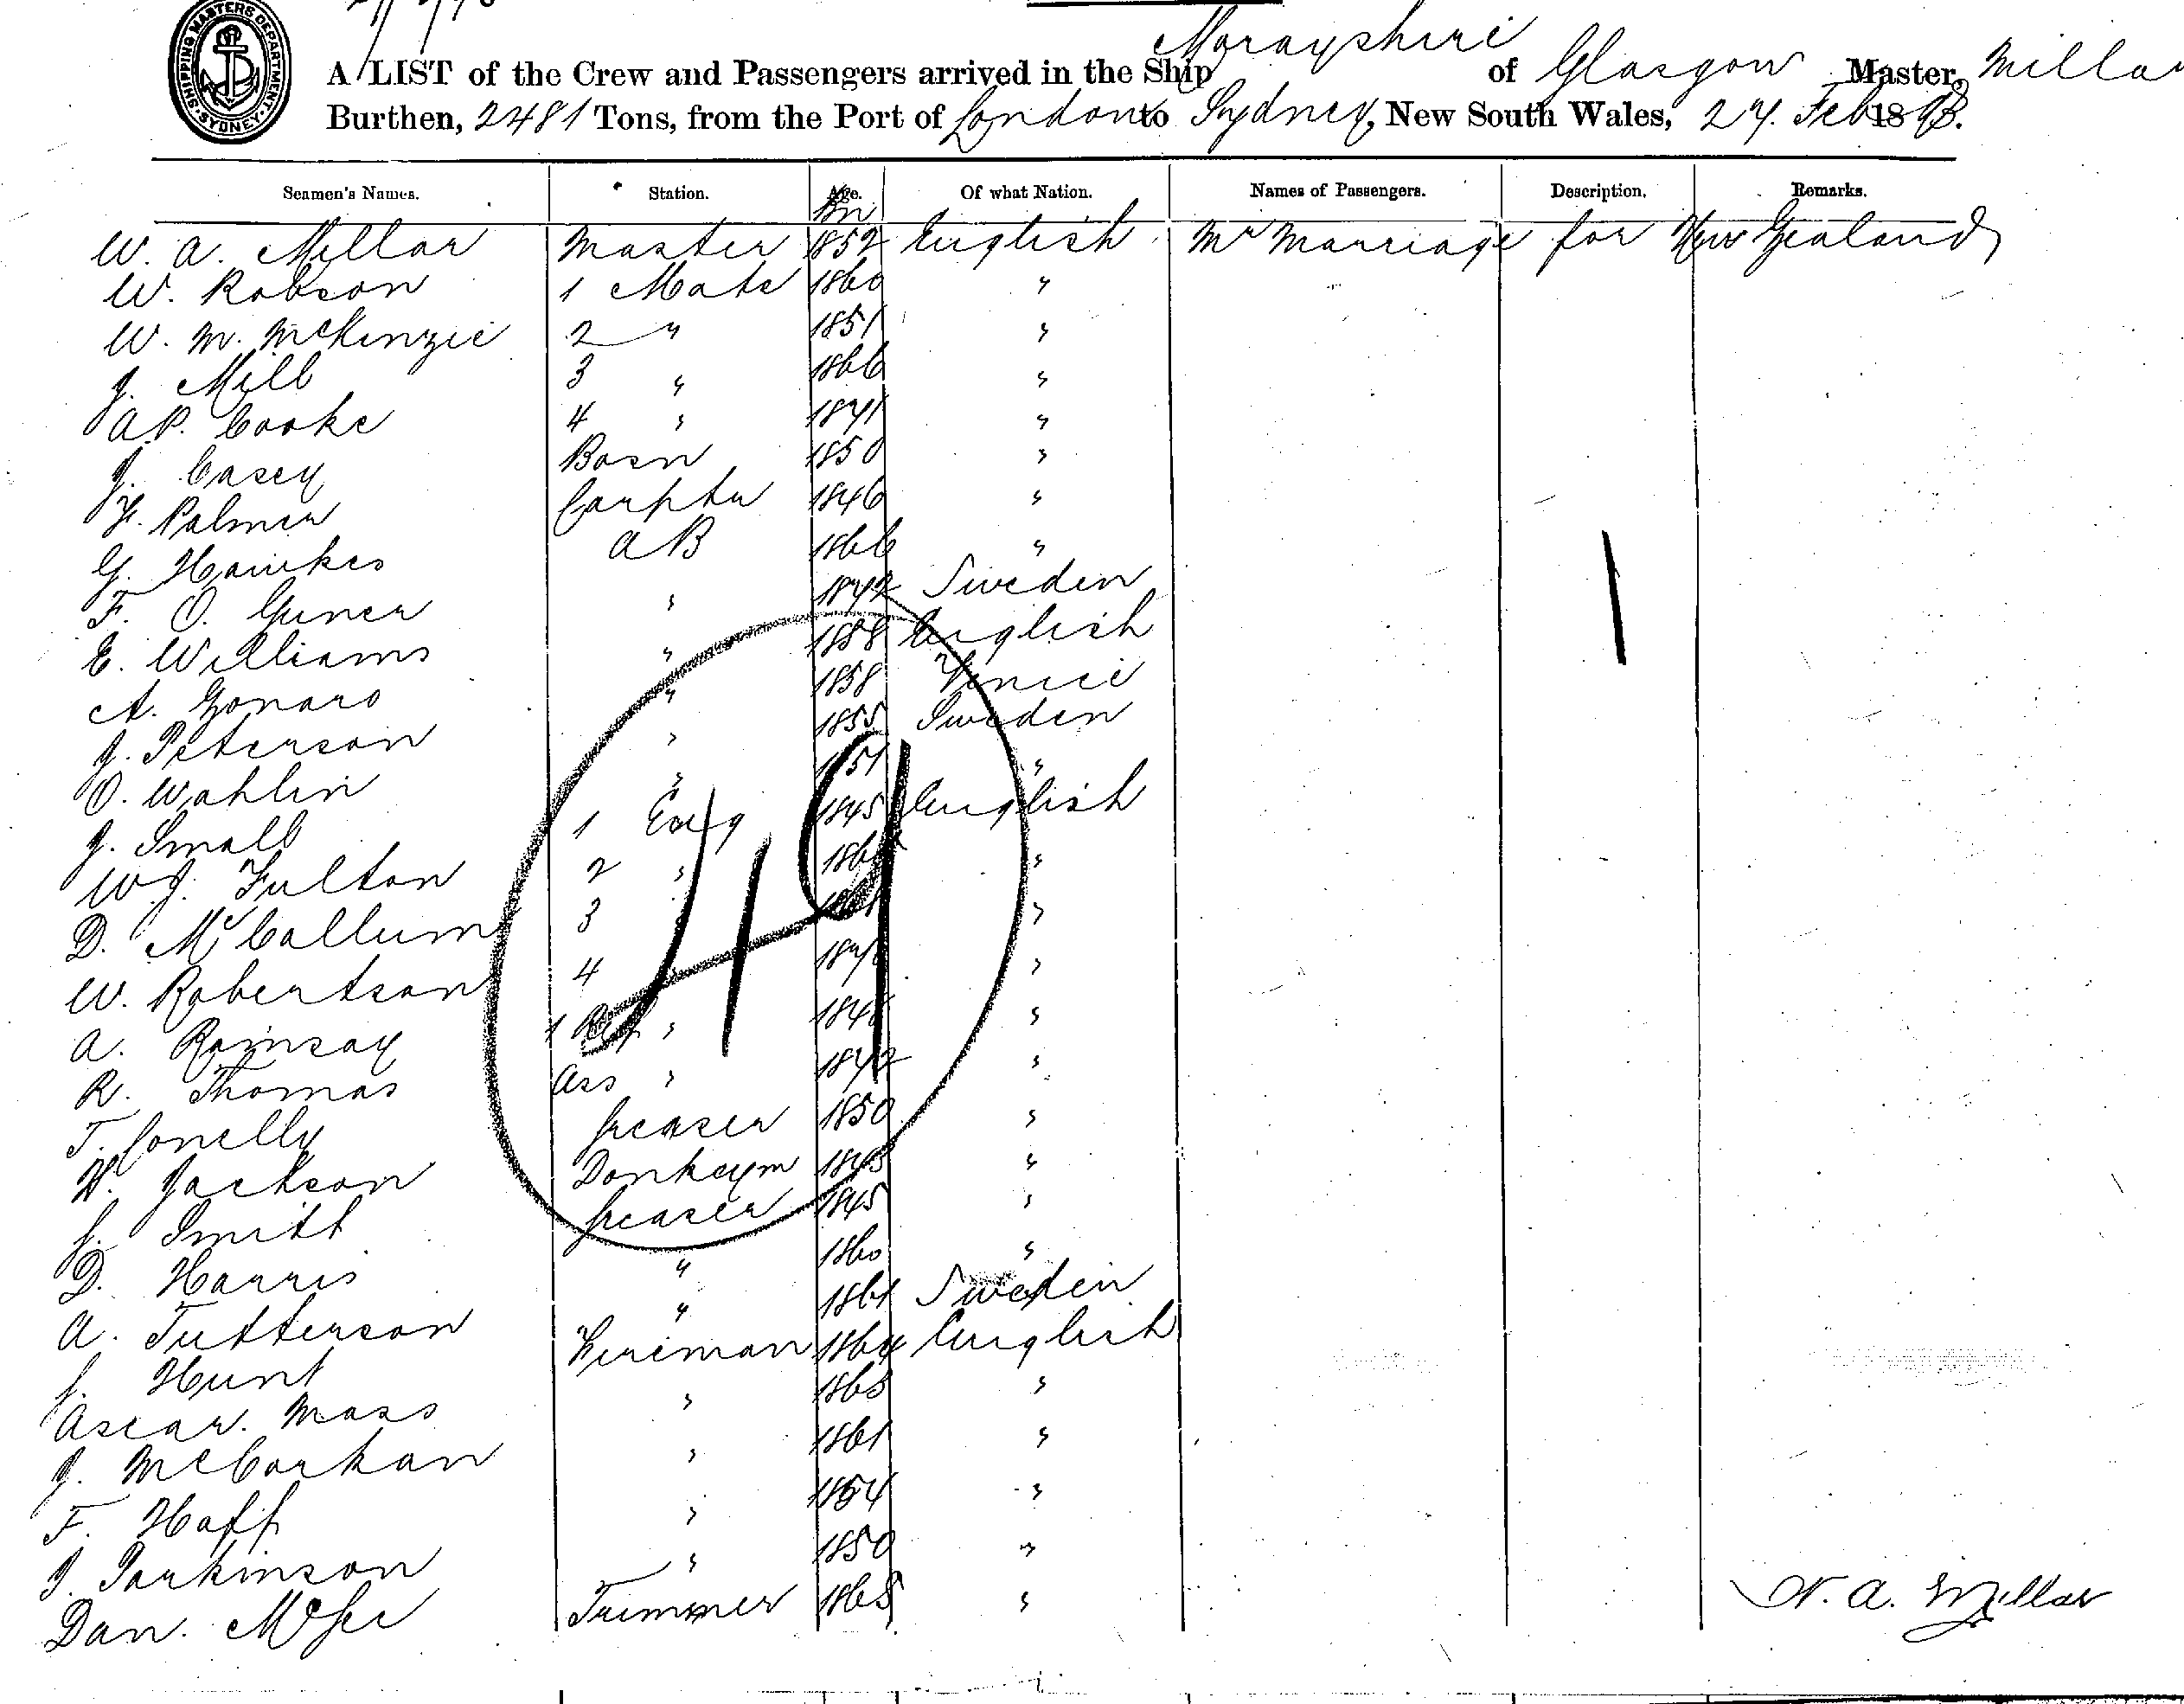 SHIPPING MASTERS DEPARTMENT SYDNEY
A LIST of the Crew and Passengers arrived in the Ship Morayshire of Glasgow Master, Millar
Burthen, 2481 Tons, from the Port of London to Sydney, New South Wales, 27. Feb 1893.
Seamen's Names. Station. Age. Bn Of what Nation. Names of Passengers. Description. Remarks.
W. A. Millar Master 1852 English Mr Marriage for New Zealand
W. Robson 1 Mate 1860 "
W. M. McKenzie 2 " 1851 "
J. Mill 3 " 1866 "
A.P. Cooke 4 " 1871 "
J. Casey Bosn 1850 "
F. Palmer Carptr 1846 "
G. Hawkes AB 1866 "
F. O. " 1872 Sweden
E. Williams " 1858 English
A. Gonaro " 1858 Venice
J. Peterson " 1855 Sweden
O. Wahlin " 1857 "
J. Small 1 Eng 1845 English
W.J. Fulton 2 " "
D. McCallum 3 "
W. Robertson 4 "
A. Ramsay 1 Ref " "
R. Thomas Ass " 1872 "
T. Conelly Greaser 1850 "
W. Jackson Donkeym 1843 "
J. Smith Greaser 1845 "
D. Harris " 1860 "
A. Tutterson " 1861 Sweden
J. Hunt Fireman 1864 English
Ascar. Mass " 1863 "
J. McCorkan " 1861 "
F. Hoff " 1854 "
J. Parkinson " 1850 "
Dan. McGee Trimmer 1865 "
W. A. Millar